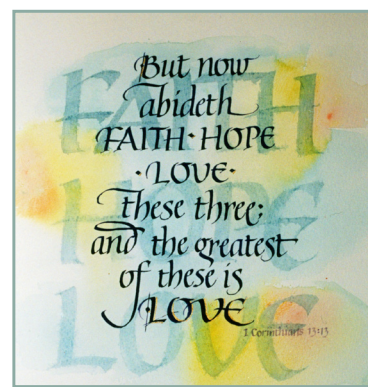 FAITH
HOPE
LOVE
But now
abideth
FAITH·HOPE
·LOVE·
these three:
and the greatest
of these is
LOVE
I Corinthians 13:13